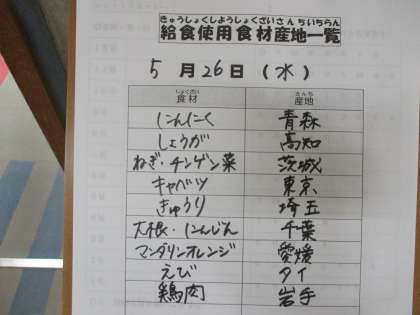 きゅうしょくしようしょくざいさんちいちらん
給食使用食材産地一覧
5月26日(水)
しょくざい さんち
食材 産地
にんにく 青森
しょうが 高知
ねぎ・チンゲン菜 茨城
キャベツ 東京
きゅうり 埼玉
大根・にんじん 千葉
マンダリンオレンジ 愛媛
えび タイ
鶏肉 岩手